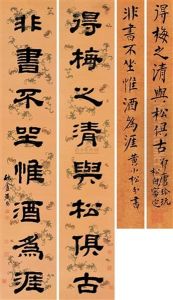 得梅之清與松俱古
非書不坐惟酒為涯 黃小松分書
得梅之清與松俱古
非書不坐惟酒爲涯